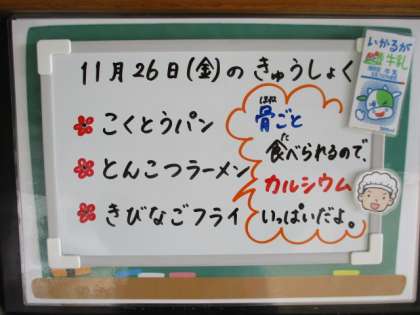 11月26日(金)の きゅうしょく
いかるが
牛乳
こくとうパン
とんこつラーメン
きびなごフライ
ほね
骨ごと
た
食べられるので、
カルシウム
いっぱいだよ。